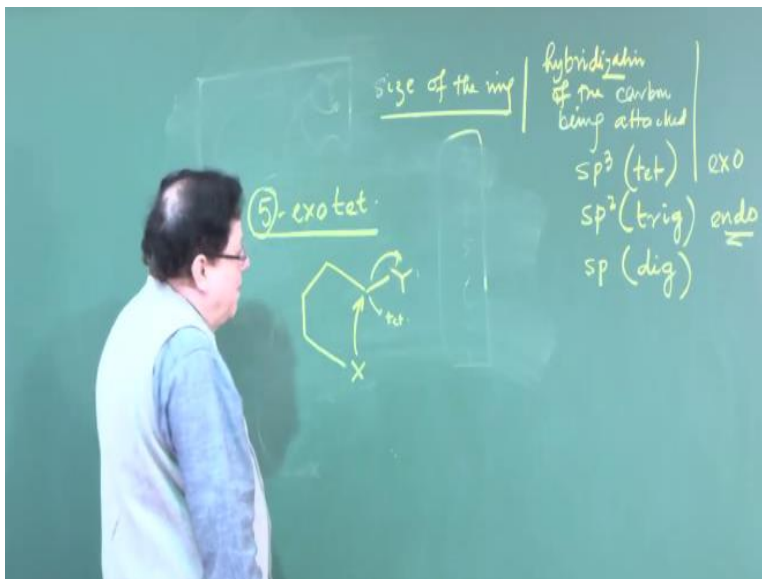 size of the ring
hybridization
of the carbon
being attacked
sp³ (tet) exo
sp² (trig) endo
sp (dig)
5-exo tet.
Y
tet.
X